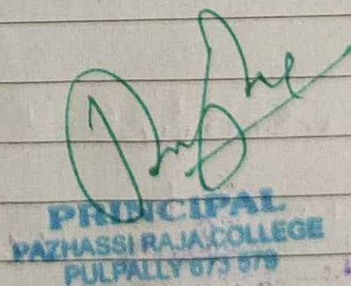 PRINCIPAL
PAZHASSI RAJA COLLEGE
PULPALLY 673 579